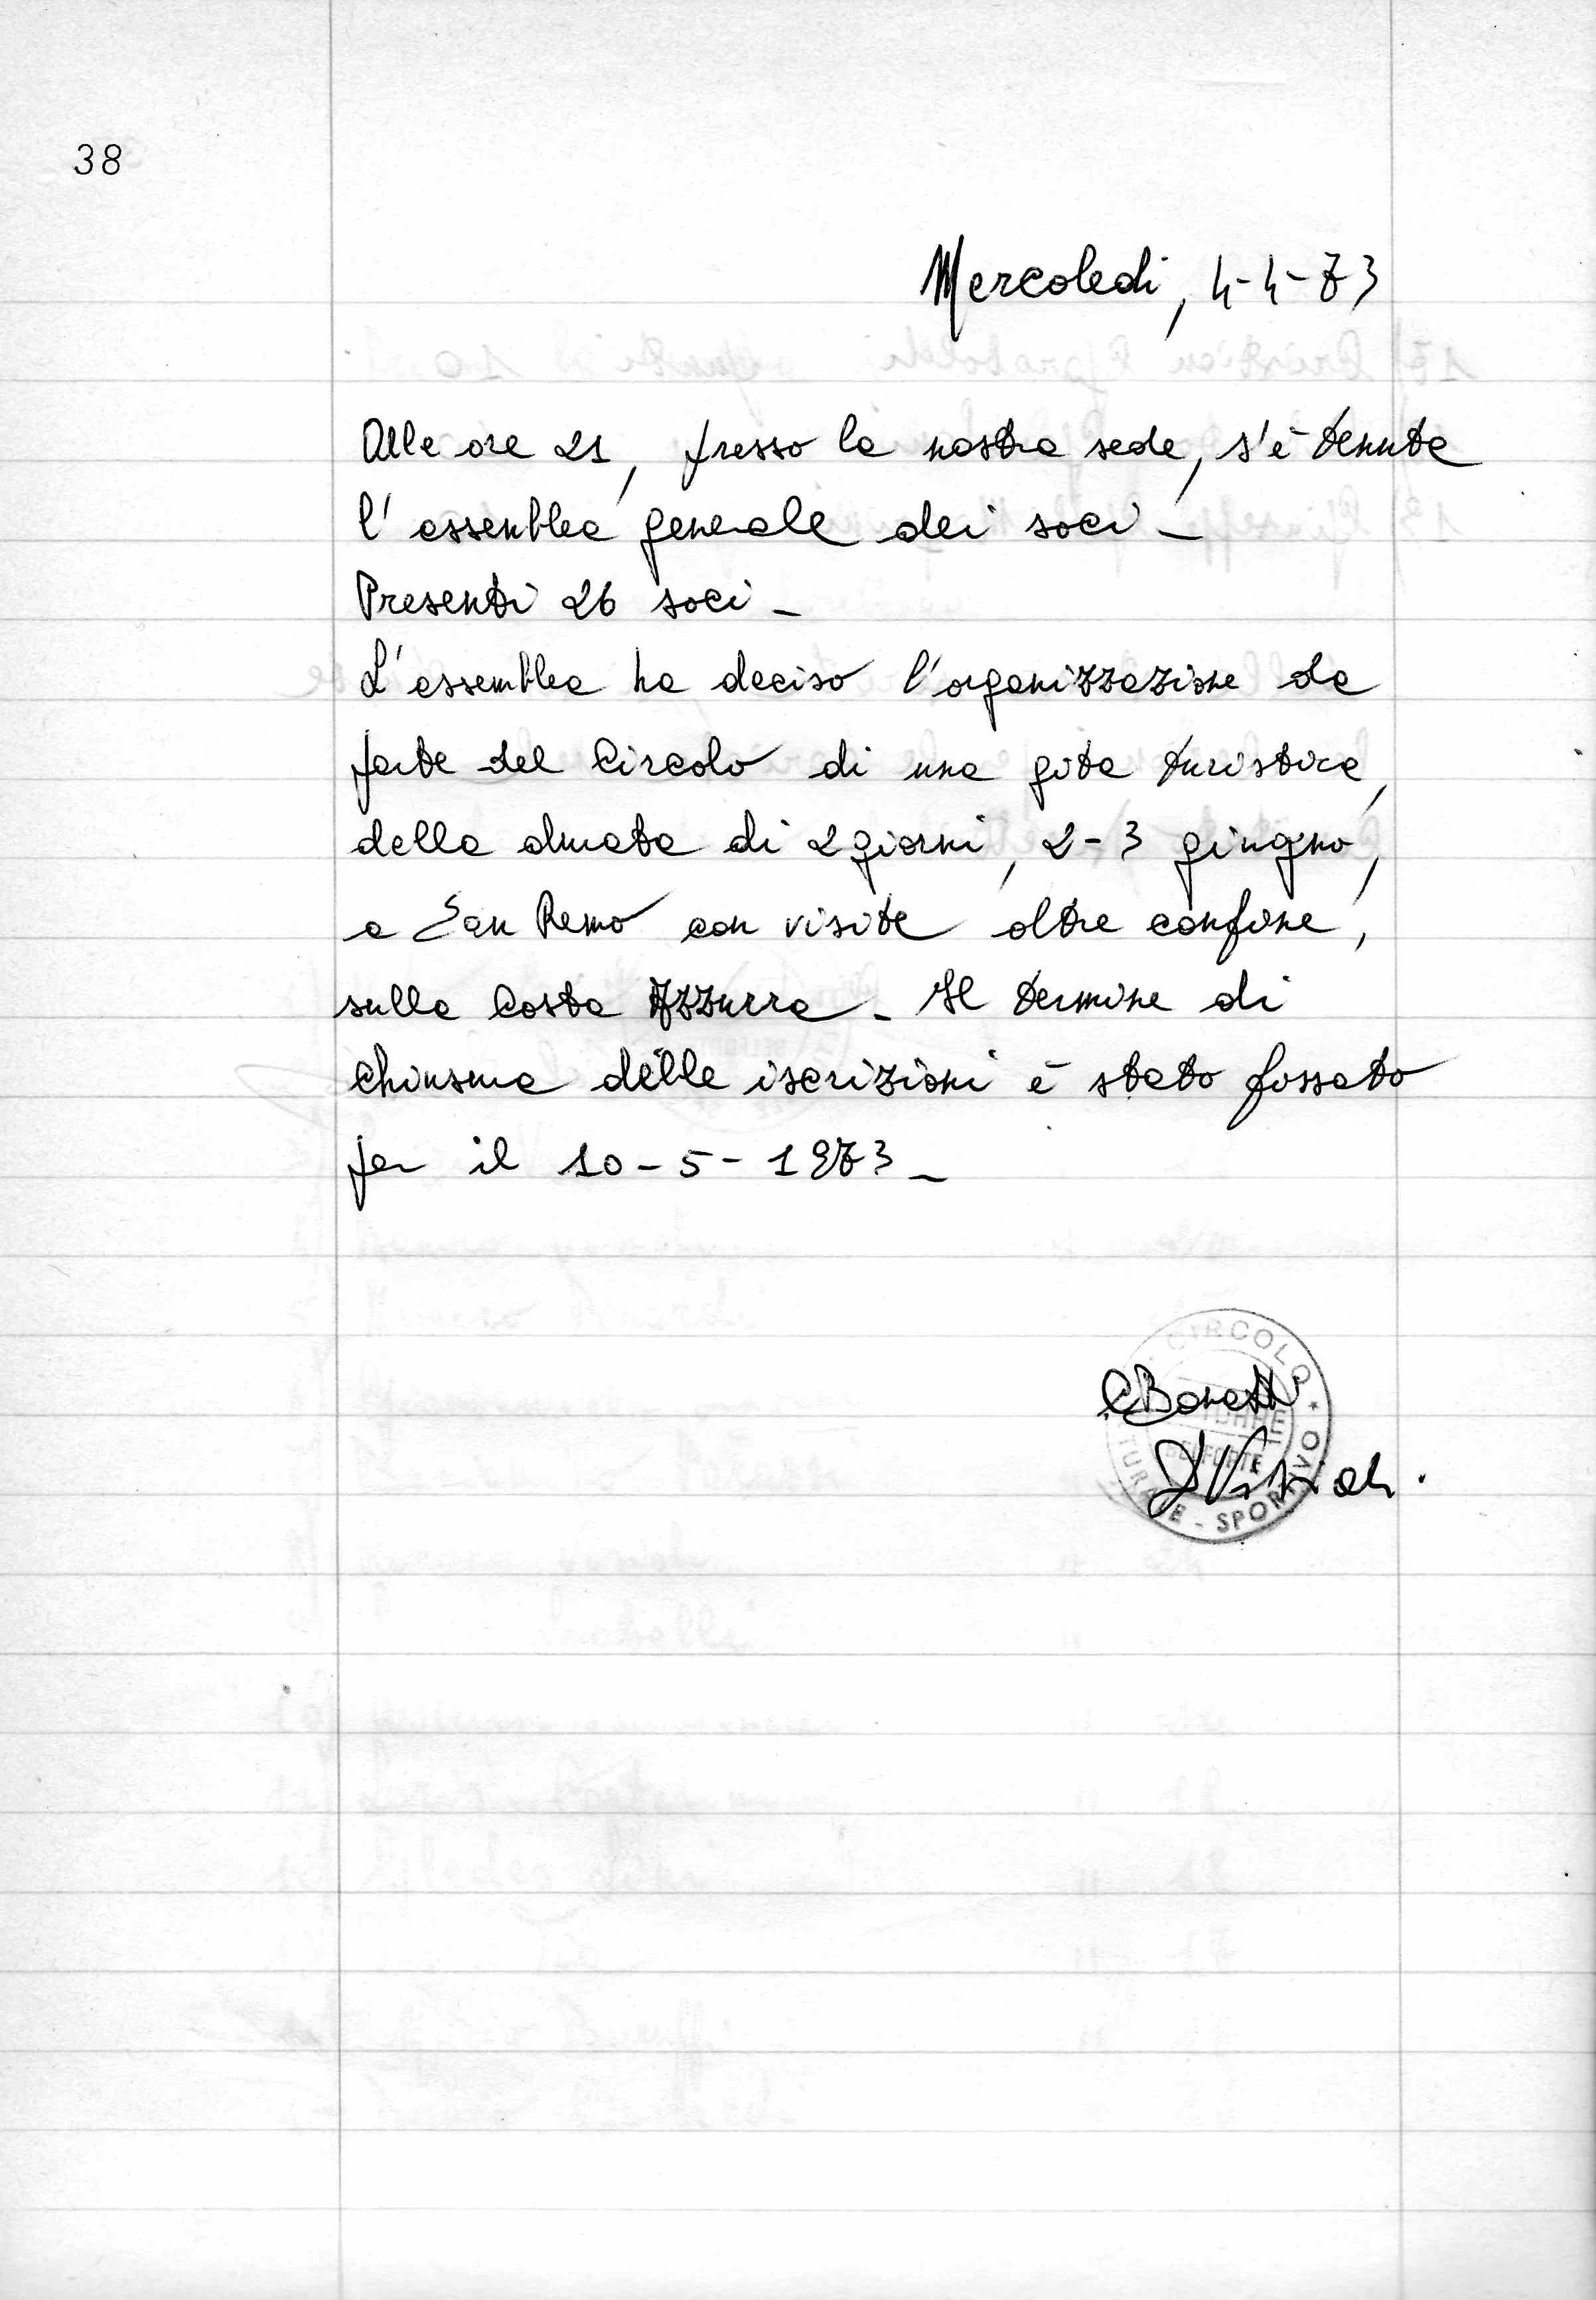 38
Mercoledi, 4-4-73
Alle ore 21, presso la nostra sede, s'è tenuta
l'assemblea generale dei soci -
Presenti 26 soci -
L'assemblea ha deciso l'organizzazione da
parte del Circolo di una gita turistica,
della durata di 2 giorni, 2-3 giugno,
a San Remo con visite oltre confine,
sulla Costa Azzurra - Il termine di
chiusura delle iscrizioni è stato fissato
per il 10-5-1973 -
CIRCOLO
CBonetti
BELFORTE
SPORTIVO